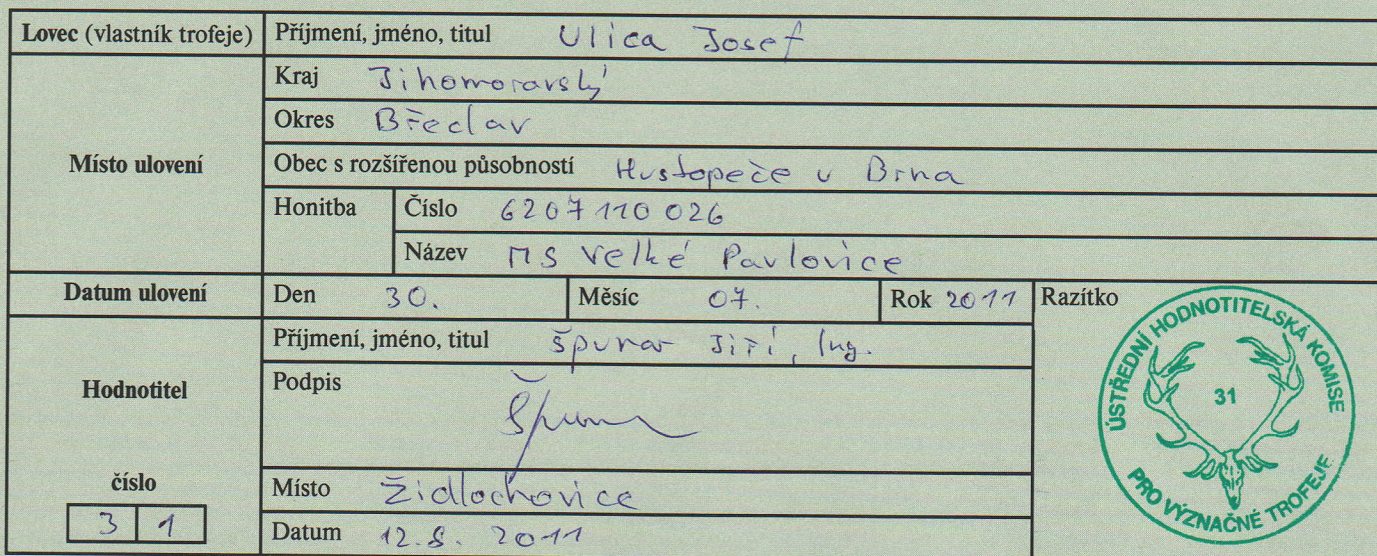 Lovec (vlastník trofeje) Příjmení, jméno, titul Ulica Josef
Kraj Jihomoravský
Okres Břeclav
Místo ulovení Obec s rozšířenou působností Hustopeče u Brna
Honitba Číslo 6207110026
Název MS Velké Pavlovice
Datum ulovení Den 30. Měsíc 07. Rok 2011 Razítko
Příjmení, jméno, titul Špunar Jiří, Ing.
Hodnotitel Podpis
Špunar
číslo Místo Židlochovice
3 1 Datum 12.8. 2011
ÚSTŘEDNÍ HODNOTITELSKÁ KOMISE
31
PRO VÝZNAČNÉ TROFEJE